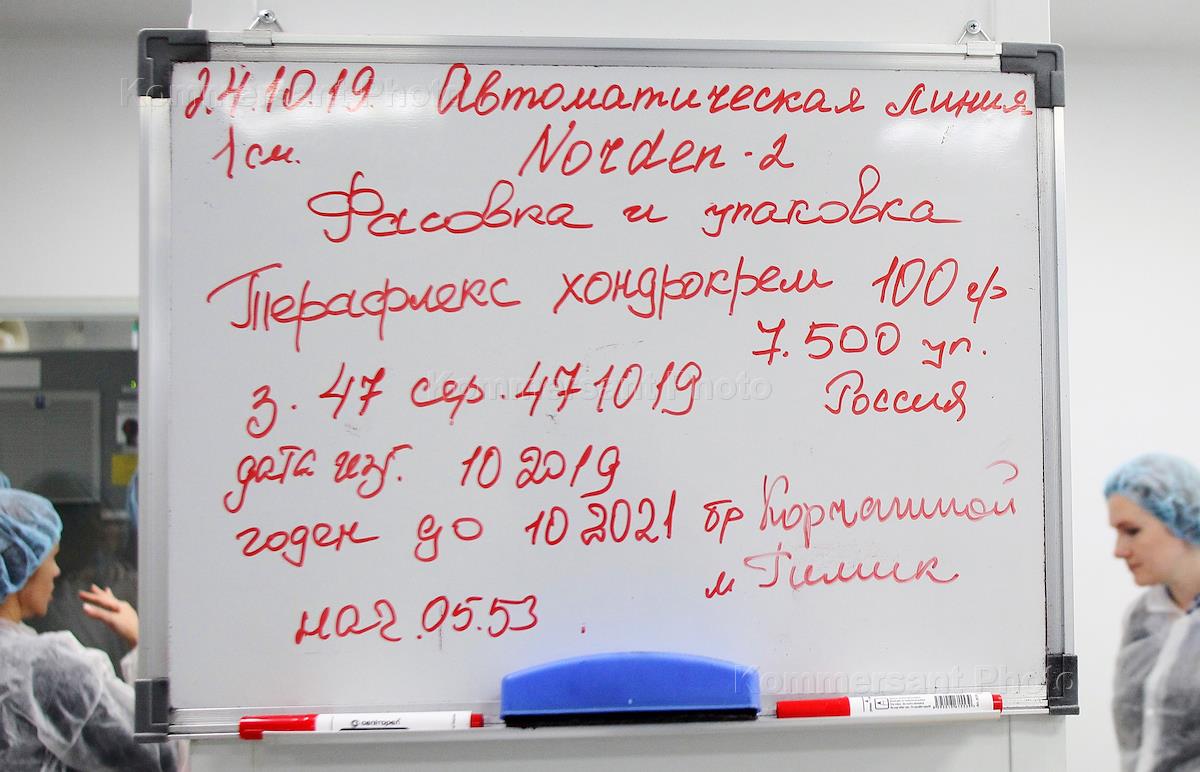 24.10.19 Автоматическая линия
1 см. Norden-2
Фасовка и упаковка
Терафлекс хондрокрем 100 гр
7.500 уп.
з. 47 сер. 471019 Россия
дата изг. 10 2019
годен до 10 2021 бр Корчагиной
м Гилик
нач. 05.53
centropen
Kommersant Photo
Kommersant Photo
Kommersant Photo